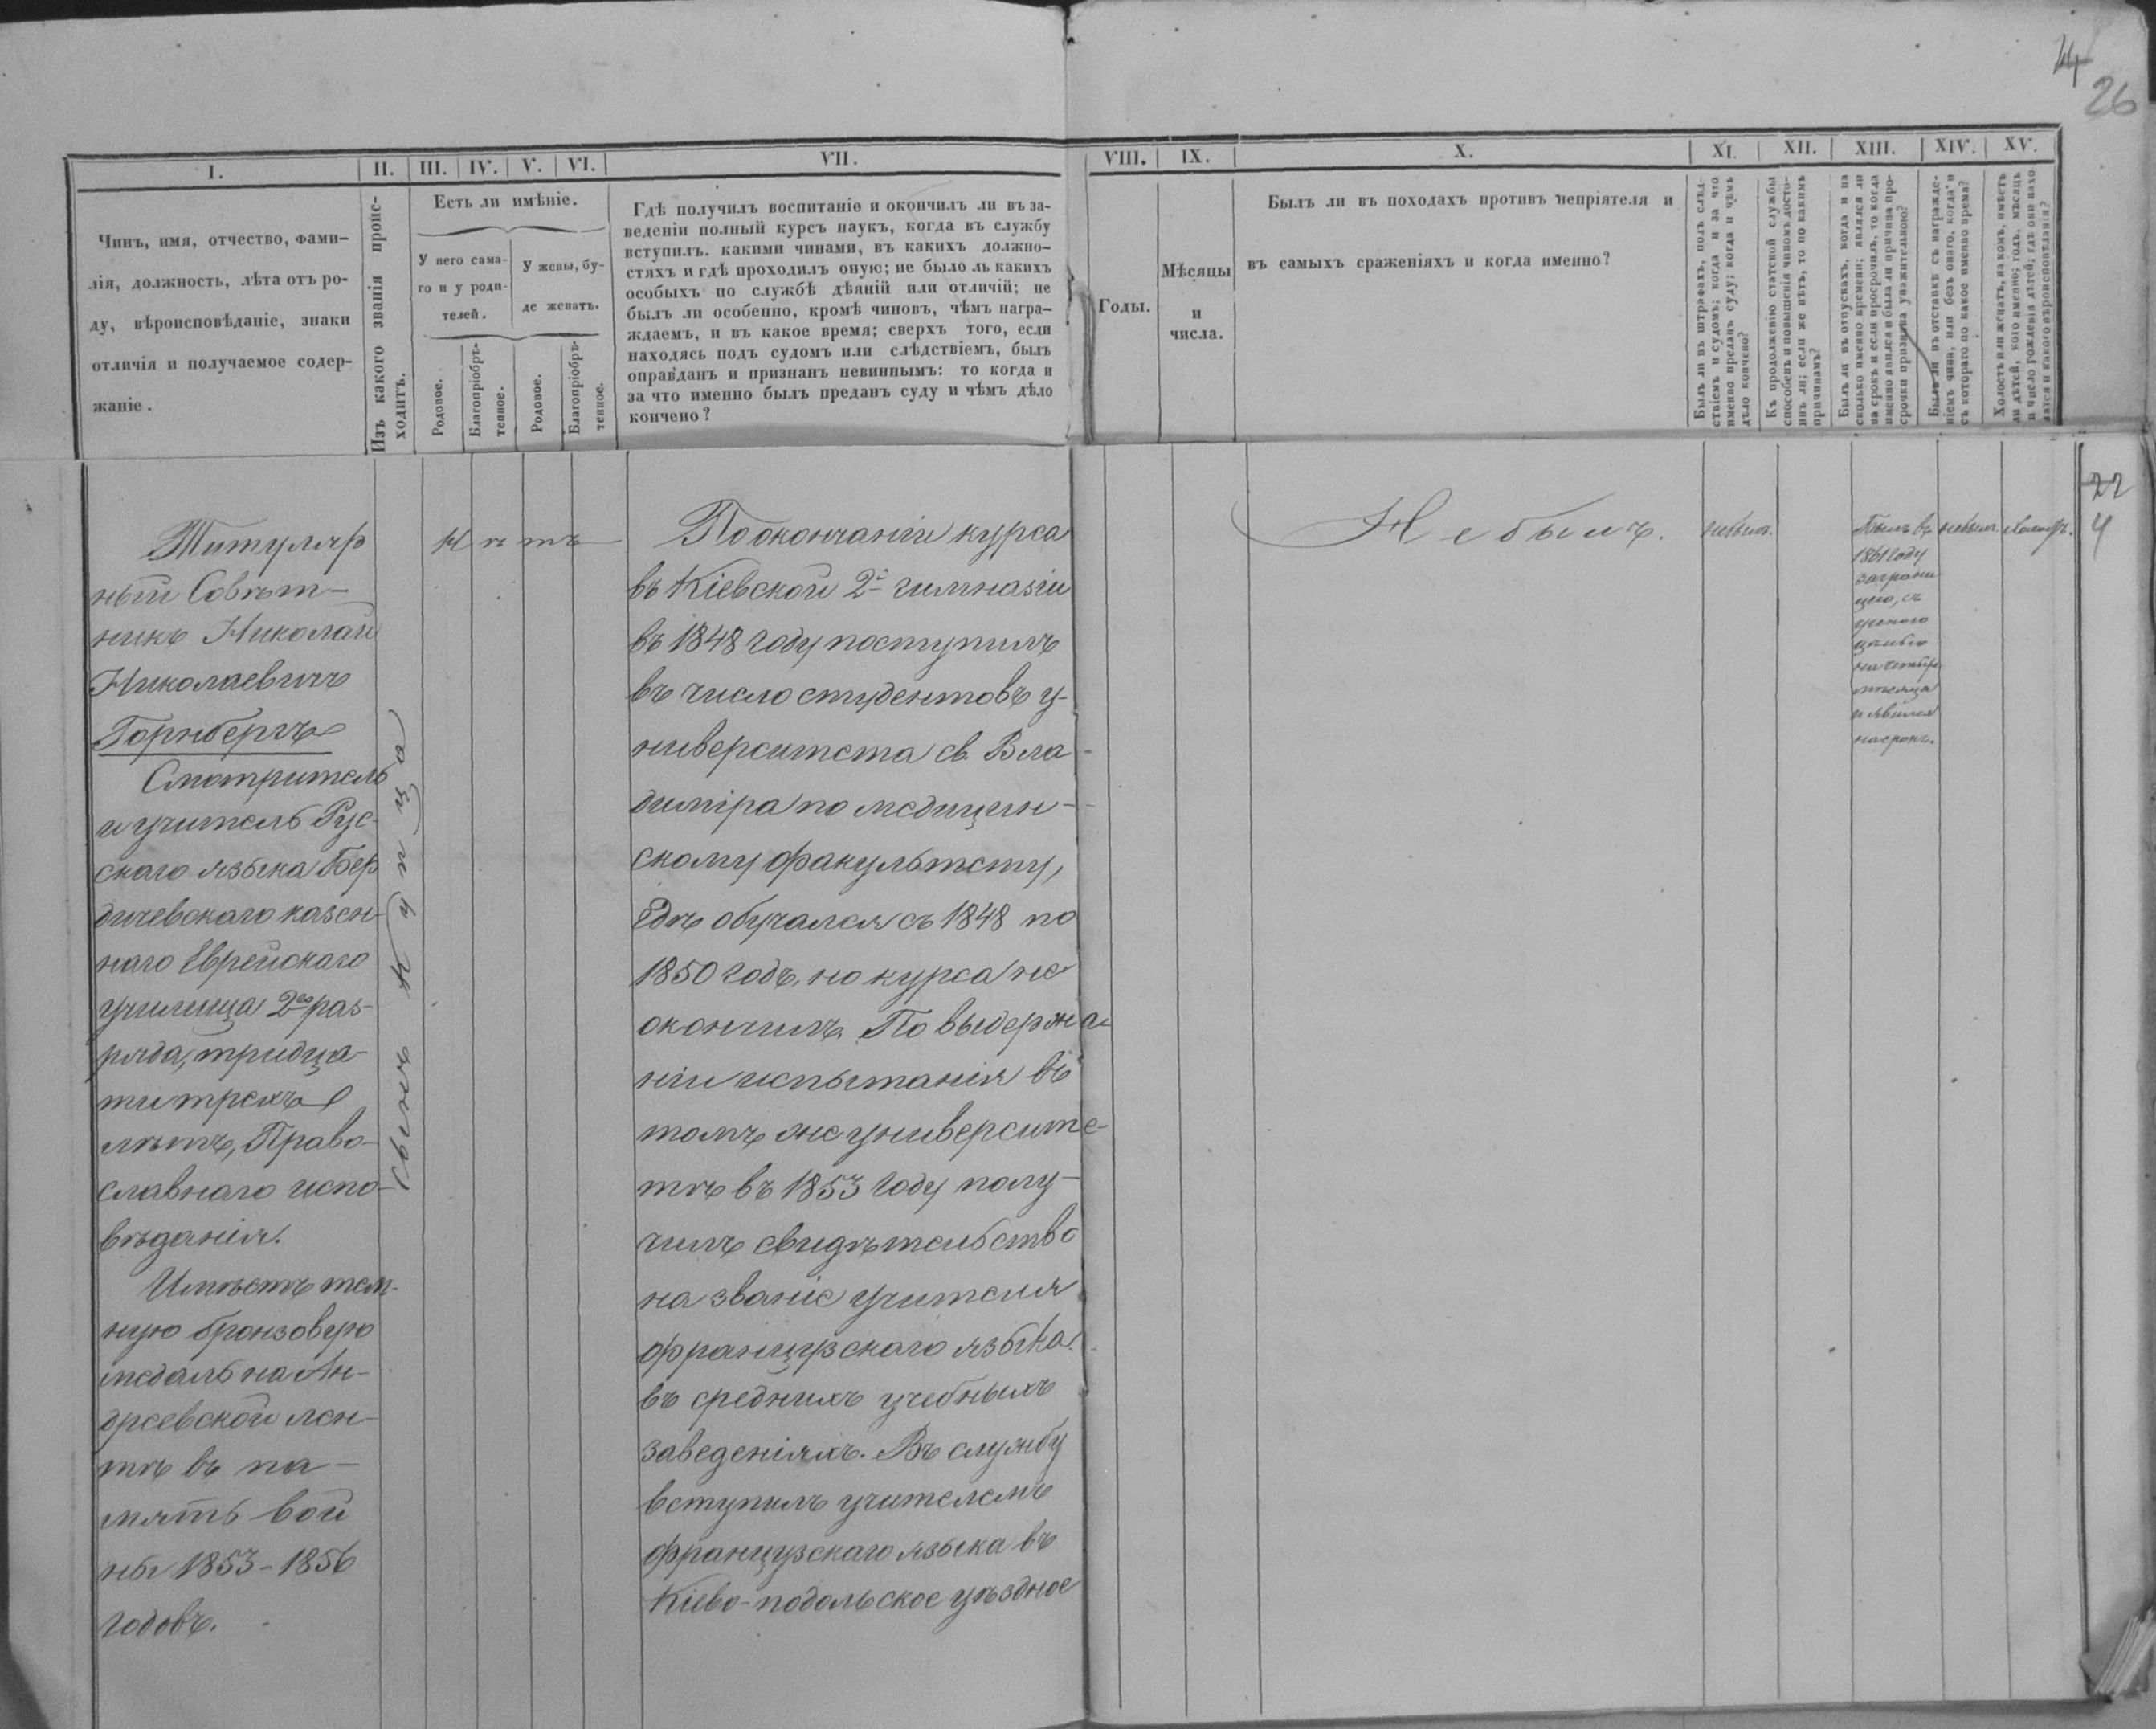 4
26
I.
II.
III.
IV.
V.
VI.
VII.
VIII.
IX.
X.
XI.
XII.
XIII.
XIV.
XV.
Чинъ, имя, отчество, фами-
лія, должность, лѣта отъ ро-
ду, вѣроисповѣданіе, знаки
отличія и получаемое содер-
жаніе.
Изъ какого званія проис-
ходитъ.
Есть ли имѣніе.
У него сама-
го и у роди-
телей.
У жены, бу-
де женатъ.
Родовое.
Благопріобрѣ-
тенное.
Родовое.
Благопріобрѣ-
тенное.
Гдѣ получилъ воспитаніе и окончилъ ли въ за-
веденіи полный курсъ наукъ, когда въ службу
вступилъ. какими чинами, въ какихъ должно-
стяхъ и гдѣ проходилъ оную; не было ль какихъ
особыхъ по службѣ дѣяній или отличій; не
былъ ли особенно, кромѣ чиновъ, чѣмъ награ-
ждаемъ, и въ какое время; сверхъ того, если
находясь подъ судомъ или слѣдствіемъ, былъ
оправданъ и признанъ невиннымъ: то когда и
за что именно былъ преданъ суду и чѣмъ дѣло
кончено?
Годы.
Мѣсяцы
и
числа.
Былъ ли въ походахъ противъ непріятеля и
въ самыхъ сраженіяхъ и когда именно?
Былъ ли въ штрафахъ, подъ слѣд-
ствіемъ и судомъ; когда и за что
именно преданъ суду; когда и чѣмъ
дѣло кончено?
Къ продолженію статской службы
способенъ и повышенія чиномъ досто-
инъ ли; если же нѣтъ, то по какимъ
причинамъ?
Былъ ли въ отпускахъ, когда и на
сколько именно времени; являлся ли
на срокъ и если просрочилъ, то когда
именно явился и была ли причина про-
срочки признана уважительною?
Былъ ли въ отставкѣ съ награжде-
ніемъ чина, или безъ онаго, когда и
съ котораго по какое именно время?
Холостъ или женатъ, на комъ, имѣетъ
ли дѣтей, кого именно; годъ, мѣсяцъ
и число рожденія дѣтей; гдѣ они нахо
дятся и какого вѣроисповѣданія?
Титуляр
ный Совѣт-
никъ Николай
Николаевичъ
Горнбергъ
Смотритель
и учитель Рус-
скаго языка Бер
дичевскаго казен-
наго Еврейскаго
училища 2го раз-
ряда, тридца-
ти трехъ
лѣтъ, Право-
славнаго испо-
вѣданія.
Имѣетъ тем-
ную бронзовую
медаль на Ан-
дреевской лен-
тѣ въ па-
мять вой
ны 1853-1856
годовъ.
Сынъ купца
Нѣтъ
По окончаніи курса
въ Кіевской 2й гимназіи
въ 1848 году поступилъ
въ число студентовъ у-
ниверситета св. Вла-
диміра по медицин-
скому факультету,
гдѣ обучался съ 1848 по
1850 годъ, но курса не
окончилъ. По выдержа
ніи испытанія въ
томъ же университе-
тѣ въ 1853 году полу-
чилъ свидѣтельство
на званіе учителя
французскаго языка
въ среднихъ учебныхъ
заведеніяхъ. Въ службу
вступилъ учителемъ
французскаго языка въ
Кіево-подольское уѣздное
Небылъ.
небылъ.
Былъ въ
1861 году
заграни
цею, съ
ученою
цѣлью
на четыре
мѣсяца
и явился
на срокъ.
небылъ.
Холостъ.
22
4